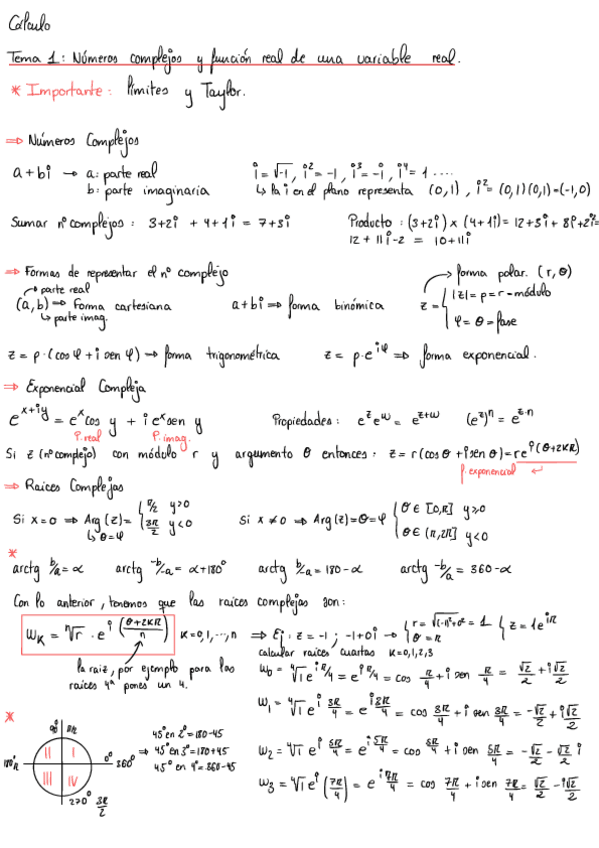 Cálculo
Tema 1: Números complejos y función real de una variable real.
* Importante: límites y Taylor.
⇒ Números Complejos
a+bi → a: parte real
b: parte imaginaria
i=√-1, i²=-1, i³=-i, i⁴=1 ....
↳ la i en el plano representa (0,1), i²=(0,1)(0,1)=(-1,0)
Sumar nº complejos: 3+2i + 4+1i = 7+3i
Producto: (3+2i)×(4+1i)= 12+3i+8i+2i²=
12+11i-2 = 10+11i
⇒ Formas de representar el nº complejo
parte real
(a,b) ⇒ Forma cartesiana
↳ parte imag.
a+bi ⇒ forma binómica
forma polar. (r,θ)
z= { |z|=ρ=r→módulo
φ=θ=fase
z=ρ·(cosφ+i senφ) → forma trigonométrica
z=ρ·e^{iφ} ⇒ forma exponencial.
⇒ Exponencial Compleja
e^{x+iy} = e^x cos y + i e^x sen y
P. real P. imag.
Propiedades: e^z e^w = e^{z+w} (e^z)^n = e^{z·n}
Si z (nº complejo) con módulo r y argumento θ entonces: z=r(cosθ+i senθ)=re^{i(θ+2kπ)}
f. exponencial ↵
⇒ Raices Complejas
Si x=0 ⇒ Arg(z)= { π/2 y>0
3π/2 y<0
↳ θ=φ
Si x≠0 ⇒ Arg(z)=θ=φ { θ∈[0,π] y≥0
θ∈(π,2π] y<0
*
arctg b/a=α arctg -b/-a=α+180° arctg b/-a=180-α arctg -b/a=360-α
Con lo anterior, tenemos que las raices complejas son:
w_K = ⁿ√r · e^{i((θ+2kπ)/n)} K=0,1,...,n
⇒ Ej: z=-1; -1+0i → { r=√(-1)²+0² = 1
θ=π
{ z=1e^{iπ}
calcular raices cuartas K=0,1,2,3
la raiz, por ejemplo para las
raices 4ª pones un 4.
w₀ = ⁴√1 e^{iπ/4} = e^{iπ/4} = cos π/4 + i sen π/4 = √2/2 + i√2/2
w₁ = ⁴√1 e^{i3π/4} = e^{i3π/4} = cos 3π/4 + i sen 3π/4 = -√2/2 + i√2/2
w₂ = ⁴√1 e^{i5π/4} = e^{i5π/4} = cos 5π/4 + i sen 5π/4 = -√2/2 - √2/2 i
w₃ = ⁴√1 e^{i(7π/4)} = e^{i7π/4} = cos 7π/4 + i sen 7π/4 = √2/2 - i√2/2
*
90° π/2
II I
180° π 0° 360°
III IV
270° 3π/2
45° en 2º=180-45
⇒ 45° en 3º=180+45
45° en 4º=360-45